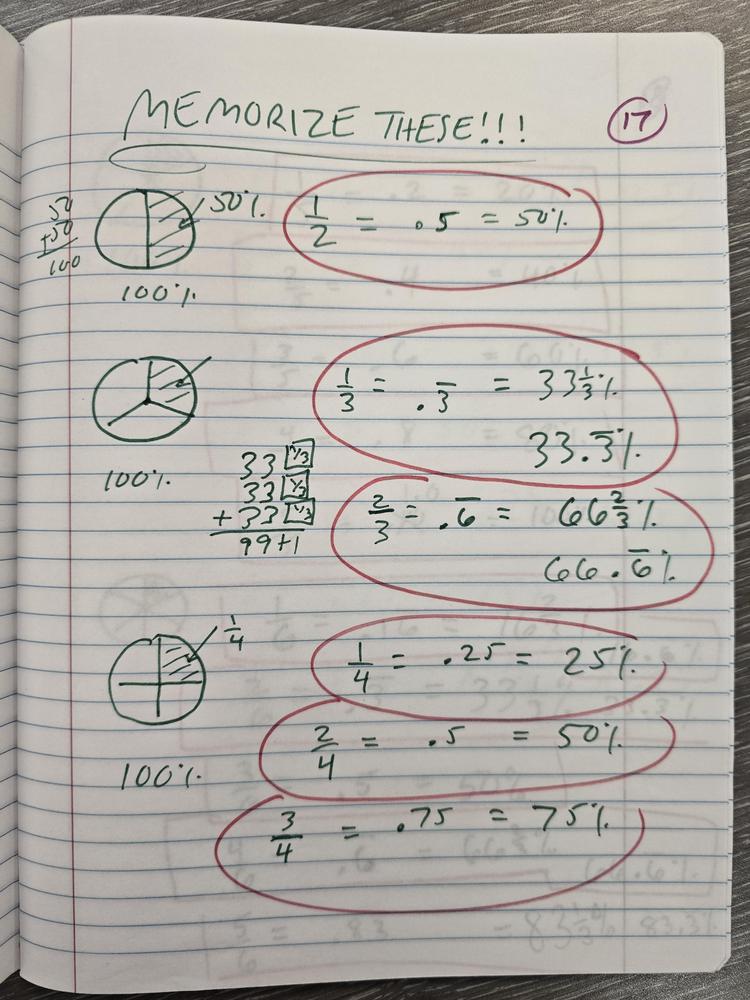 MEMORIZE THESE!!!
17
50
+50
100
50%
100%
1/2 = .5 = 50%
100%
1/3 = .3̅ = 33 1/3 %
33.3̅%
33 1/3
33 1/3
+ 33 1/3
99+1
2/3 = .6̅ = 66 2/3 %
66.6̅%
1/4
100%
1/4 = .25 = 25%
2/4 = .5 = 50%
3/4 = .75 = 75%